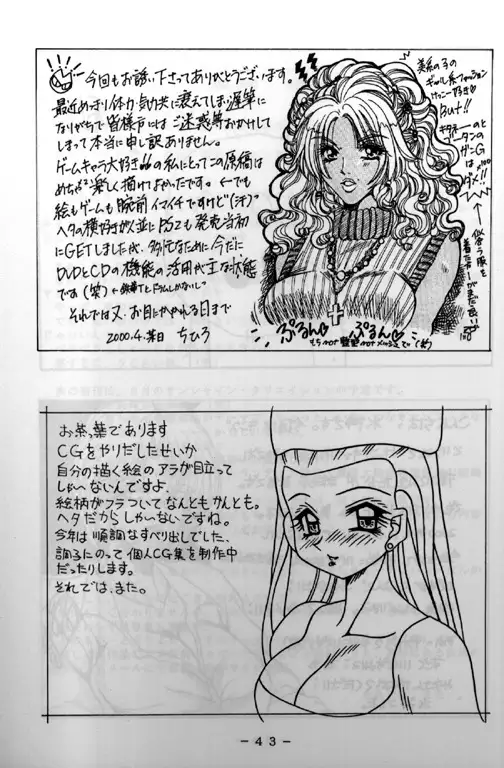 今回もお誘い下さってありがとうございます。
最近めっきり体力・気力共に衰えてしまい遅筆に
なりがちで皆様方にはご迷惑等おかけして
しまって本当に申し訳ありません。
ゲームキャラ大好きの私にとってこの原稿は
めちゃめちゃ楽しく描けてよかったです。←でも
絵もゲームも腕前イマイチですけど(汗)
ヘタの横好きが
PS2も発売当初
にGETしましたが、多忙なために今だに
DVDとCDの機能の活用が主な状態
です(笑)
それでは又、お目にかかれる日まで
2000.4.某日 ちひろ
美系の子の
ギャル系ファッション
But!!
ダメ!!
ぷるん♡ ぷるん♡
お茶葉であります
CGをやりだしたせいか
自分の描く絵のアラが目立って
しゃ〜ないんですよ
絵柄がフラついてなんともかんとも。
ヘタだからしゃ〜ないですね。
今年は順調なすべり出しでした、
調子にのって個人CG集を制作中
だったりします。
それでは、また。
-43-